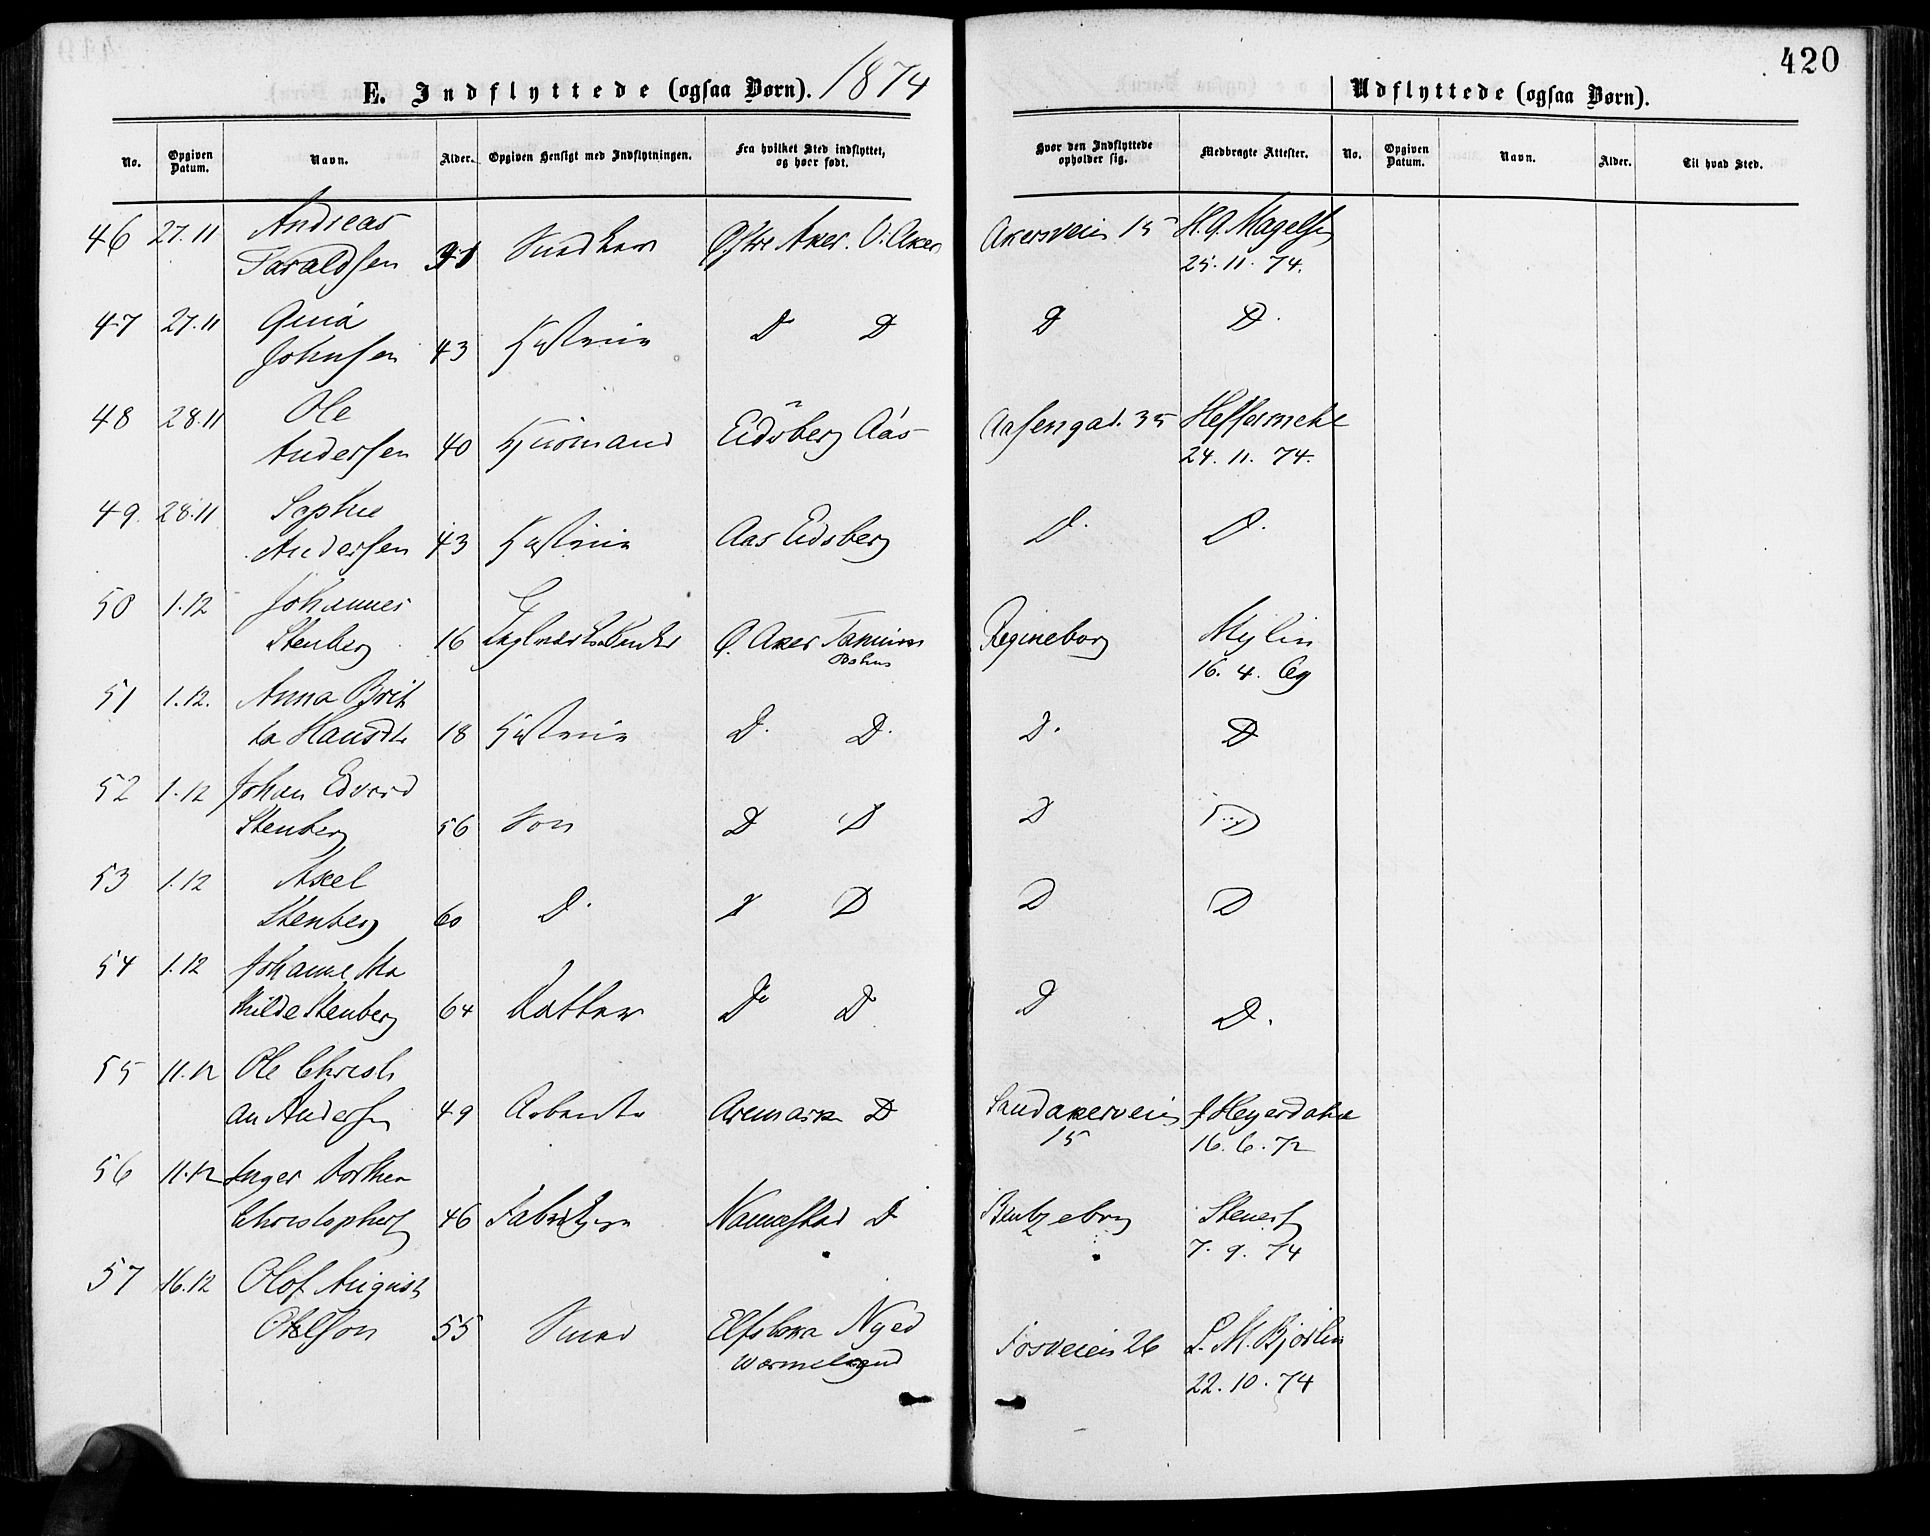 420
E. Indflyttede (ogsaa Børn). 1874
Udflyttede (ogsaa Børn).
No. Opgiven Datum. Navn. Alder. Opgiven Hensigt med Indflytningen. Fra hvilket Sted indflyttet, og hvor født. Hvor den Indflyttede opholder sig. Medbragte Attester. No. Opgiven Datum. Navn. Alder. Til hvad Sted.
46 27.11 Andreas
Taraldsen Østre Aker. Ø. Aker Akersveien 15 H. G. Magelsen
25.11.74.
47 27.11
Johnsen 43 Hustru D D D D.
48 28.11 Ole
Andersen 40 Eidsberg Aas Aasengad. 35
24.11.74.
49 28.11 Sophie
Andersen 43 Hustru Aas Eidsberg D. D.
50 1.12 Johannes
Stenberg 16 Ø. Aker Regineborg
Bohus 16.4.
51 1.12. Anna Brit
ta Hansdtr 18 Hustru D. D. D. D
52 1.12 Johan Edvard
Stenberg 56 Søn D D D D
53 1.12 Axel
Stenberg 60 D. D D D D
54 1.12 Johanne Ma
thilde Stenberg 64 Datter D D D D.
55 11.12 Ole Christi
an Andersen 49 Arbeider Aremark D Sandakerveien J Heyerdahl
15 16.6.72
56 11.12 Inger Dorthea
Christophers 46 Nannestad D Bentzebrog Stenersen
7.9.74
57 16.12 Olof August
Olsson 55 Smed Nyed Fosveien 26 L. M. Bjørlin
Wermeland 22.10.74